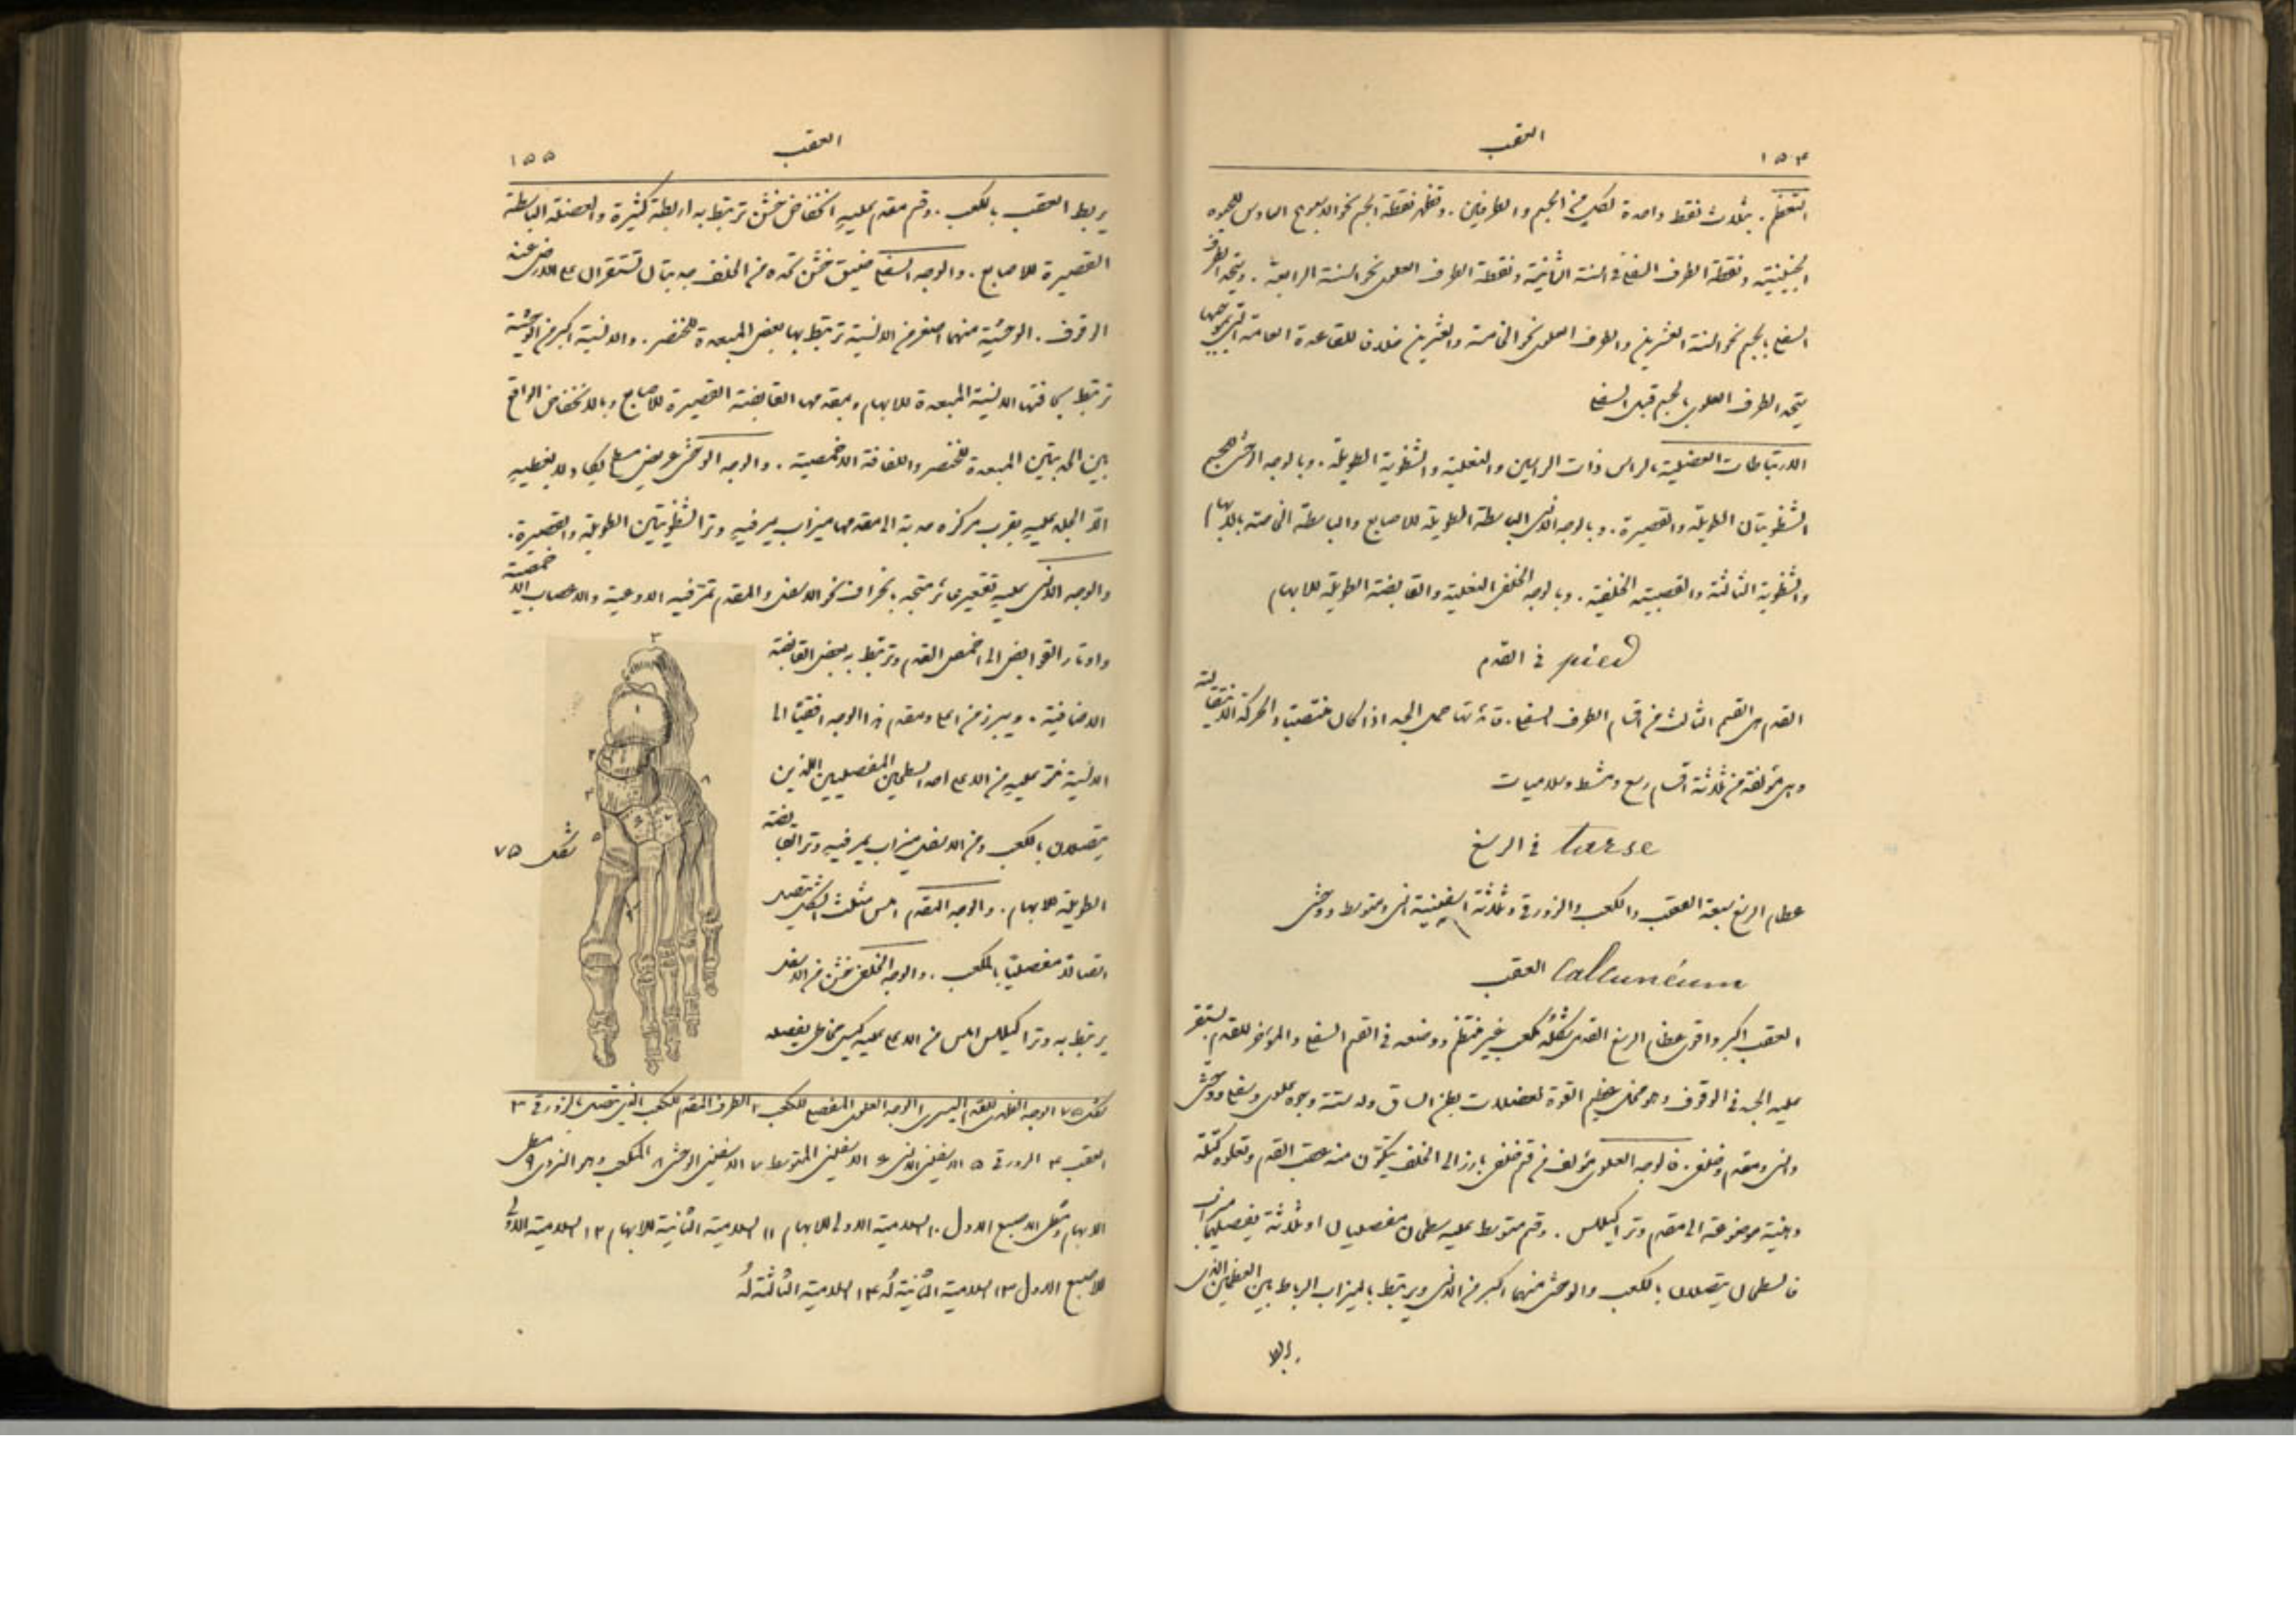 ١٥٤
العقب
التعظم . بثلاث نقط واحدة لكل من الجسم والطرفين . وتظهر نقطة الجسم نحو الاسبوع السادس للحيوة
الجنينية ونقطة الطرف السفلي في السنة الثانية ونقطة الطرف العلوي نحو السنة الرابعة . ويتحد الطرف
السفلي بالجسم نحو السنة العشرين والطرف العلوي نحو الخامسة والعشرين خلافا للقاعدة العامة التي بموجبها
يتحد الطرف العلوي بالجسم قبل السفلي
الارتباطات العضلية بالراس ذات الراسين والنعلية والشظوية الطويلة . وبالوجه الوحشي للجسم
الشظويتان الطويلة والقصيرة . وبالوجه الانسي الباسطة الطويلة للاصابع والباسطة الخاصة بالابهام
والشظوية الثالثة والقصبية الخلفية . وبالوجه الخلفي النعلية والقابضة الطويلة للابهام
pied في القدم
القدم هي القسم الثالث من اقسام الطرف السفلي . قائمتها حمل الجسد اذا كان منتصبا والحركة الانتقالية
وهي مؤلفة من ثلاثة اقسام رسغ ومشط وسلاميات
tarse في الرسغ
عظام الرسغ سبعة العقب والكعب والزورقي وثلاثة اسفينية انسي ومتوسط ووحشي
Calcaneum العقب
العقب اكبر واقوى عظام الرسغ القدمي شكله مكعب غير منتظم ووضعه في القسم السفلي والمؤخر للقدم يستقر
عليه الجسد في الوقوف وهو مخل عظيم القوة لعضلات بطن الساق وله ستة وجوه علوي وسفلي ووحشي
وانسي ومقدم وخلفي . فالوجه العلوي مؤلف من قسم خلفي بارز الى الخلف يتكون منه عقب القدم وتعلوه كتلة
دهنية موضوعة الى مقدم وتر اكيللس . وقسم متوسط عليه سطحان مفصليان او ثلاثة يفصلهما ميزاب
فالسطحان يتصلان بالكعب والوحشي منهما اكبر من الانسي ويرتبط بالميزاب الرباط بين العظمين الذي
يربط
العقب
١٥٥
يربط العقب بالكعب . وقسم مقدم عليه انخفاض خشن ترتبط به اربطة كثيرة والعضلة الباسطة
القصيرة للاصابع . والوجه السفلي ضيق خشن تحده من الخلف حدبتان تستقران على الارض عند
الوقوف . الوحشية منهما اصغر من الانسية ترتبط بها بعض المبعدة للخنصر . والانسية اكبر من الوحشية
ترتبط بحافتها الانسية المبعدة للابهام وبمقدمها القابضة القصيرة للاصابع وبالانخفاض الواقع
بين الحدبتين المبعدة للخنصر واللفافة الاخمصية . والوجه الوحشي عريض مسطح يكاد لا يغطيه
الا الجلد عليه بقرب مركزه حدبة الى مقدمها ميزاب يمر فيه وترا الشظويتين الطويلة والقصيرة .
والوجه الانسي عليه تقعير غائر متجه بانحراف نحو الاسفل والمقدم تمر فيه الاوعية والاعصاب الاخمصية
واوتار القوابض الى اخمص القدم وترتبط به بعض القابضة
الاضافية . ويبرز من اعلى ومقدم هذا الوجه افقيا الى
الانسية نتؤ عليه من الاعلى احد السطحين المفصليين اللذين
يتصلان بالكعب ومن الاسفل ميزاب يمر فيه وتر القابضة
الطويلة للابهام . والوجه المقدم املس مثلث الشكل يتصل
اتصالا مفصليا بالمكعب . والوجه الخلفي خشن من الاسفل
يرتبط به وتر اكيللس املس من الاعلى عليه كيس مخاطي يفصله
شكل ٧٥
شكل ٧٥ الوجه الظهري للقدم اليسرى ١ الوجه العلوي المفصلي للكعب ٢ الطرف المقدم للكعب الذي يتصل بالزورقي ٣
العقب ٤ الزورقي ٥ الاسفيني الانسي ٦ الاسفيني المتوسط ٧ الاسفيني الوحشي ٨ المكعب وهو النردي ٩ مشط
الابهام ومشط الاصبع الاول ١٠ السلامية الاولى للابهام ١١ السلامية الثانية للابهام ١٢ السلامية الاولى
للاصبع الاول ١٣ السلامية الثانية له ١٤ السلامية الثالثة له